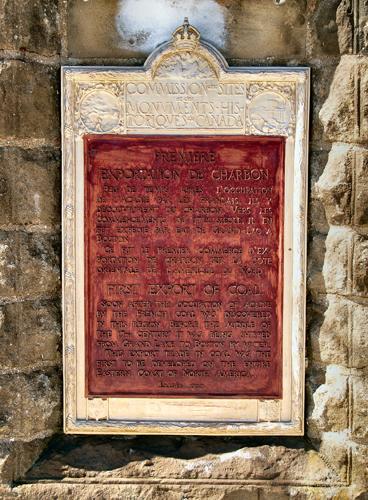 COMMISSION DES SITES
ET
MONUMENTS HIS-
TORIQUES CANADA
PREMIÈRE
EXPORTATION DE CHARBON
PEU DE TEMPS APRÈS L'OCCUPATION
DE L'ACADIE PAR LES FRANÇAIS, ILS Y
DÉCOUVRIRENT DU CHARBON. VERS LES
COMMENCEMENTS DU SIÈCLE IL EN
FUT EXPÉDIÉ PAR EAU DE GRAND LAC À
BOSTON.
CE FUT LE PREMIER COMMERCE D'EX-
PORTATION DE CHARBON SUR LA CÔTE
ORIENTALE DE L'AMÉRIQUE DU NORD.
FIRST EXPORT OF COAL
SOON AFTER THE OCCUPATION OF ACADIE
BY THE FRENCH COAL WAS DISCOVERED
IN THIS REGION. BEFORE THE MIDDLE OF
THE CENTURY IT WAS BEING SENT
FROM GRAND LAKE TO BOSTON BY WATER.
THIS EXPORT TRADE IN COAL WAS THE
FIRST TO BE DEVELOPED ON THE ENTIRE
EASTERN COAST OF NORTH AMERICA.